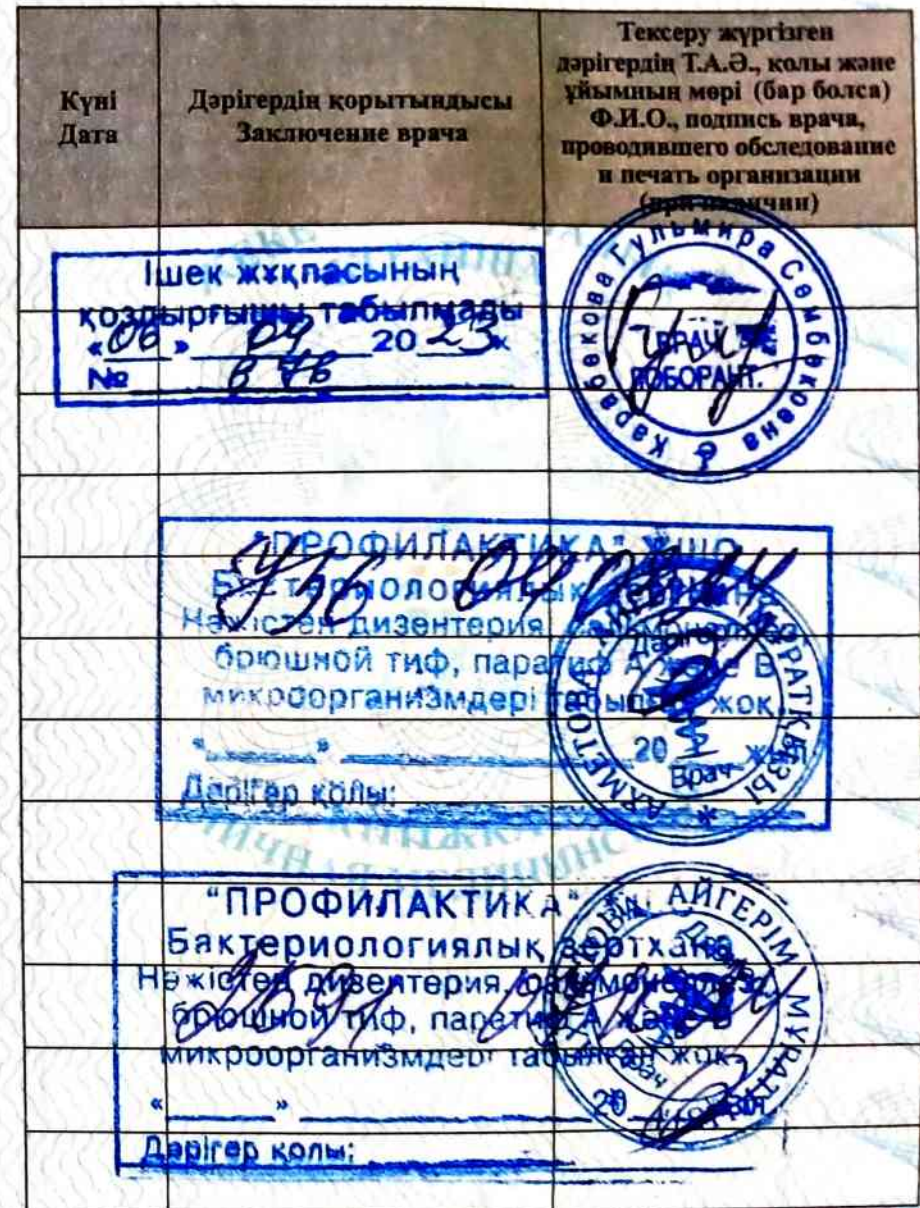 Күні
Дата
Дәрігердің қорытындысы
Заключение врача
Тексеру жүргізген
дәрігердің Т.А.Ә., қолы және
ұйымның мөрі (бар болса)
Ф.И.О., подпись врача,
проводившего обследование
и печать организации
(при наличии)
Ішек жұқпасының
қоздырғышы табылмады
«06» 09 2023ж
№
Карабекова Гульмира Сембековна
ВРАЧ
ЛОБОРАНТ.
"ПРОФИЛАКТИКА" ЖШС
Бактериологиялық зертхана
Нәжістен дизентерия, сальмонеллез,
брюшной тиф, паратиф А және В
микроорганизмдері табылған жоқ
«» 20 жыл
Дәрігер қолы:
АХМЕТОВА МҰРАТҚЫЗЫ
Дәрігер
Врач
"ПРОФИЛАКТИКА"
Бактериологиялық зертхана
Нәжістен дизентерия, сальмонеллез,
брюшной тиф, паратиф А және В
микроорганизмдері табылған жоқ
«» 20
Дәрігер қолы:
АЙГЕРІМ
Врач